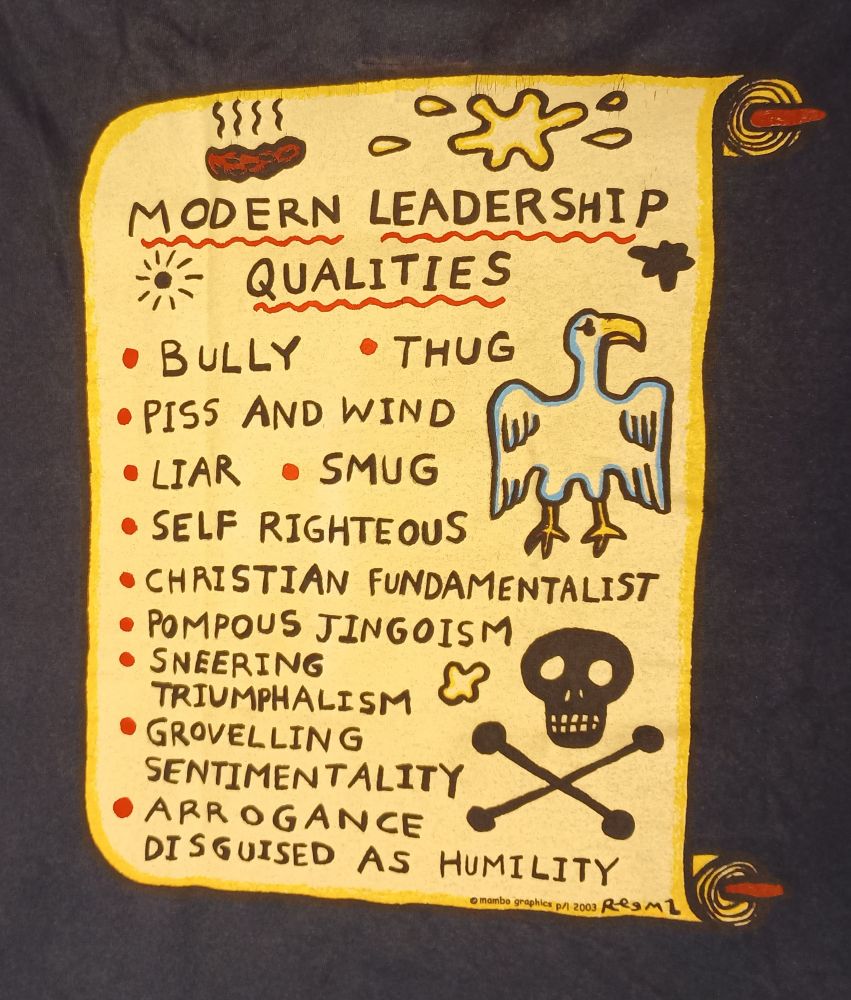 MODERN LEADERSHIP
QUALITIES
• BULLY • THUG
• PISS AND WIND
• LIAR • SMUG
• SELF RIGHTEOUS
• CHRISTIAN FUNDAMENTALIST
• POMPOUS JINGOISM
• SNEERING
TRIUMPHALISM
• GROVELLING
SENTIMENTALITY
• ARROGANCE
DISGUISED AS HUMILITY
© mambo graphics p/l 2003